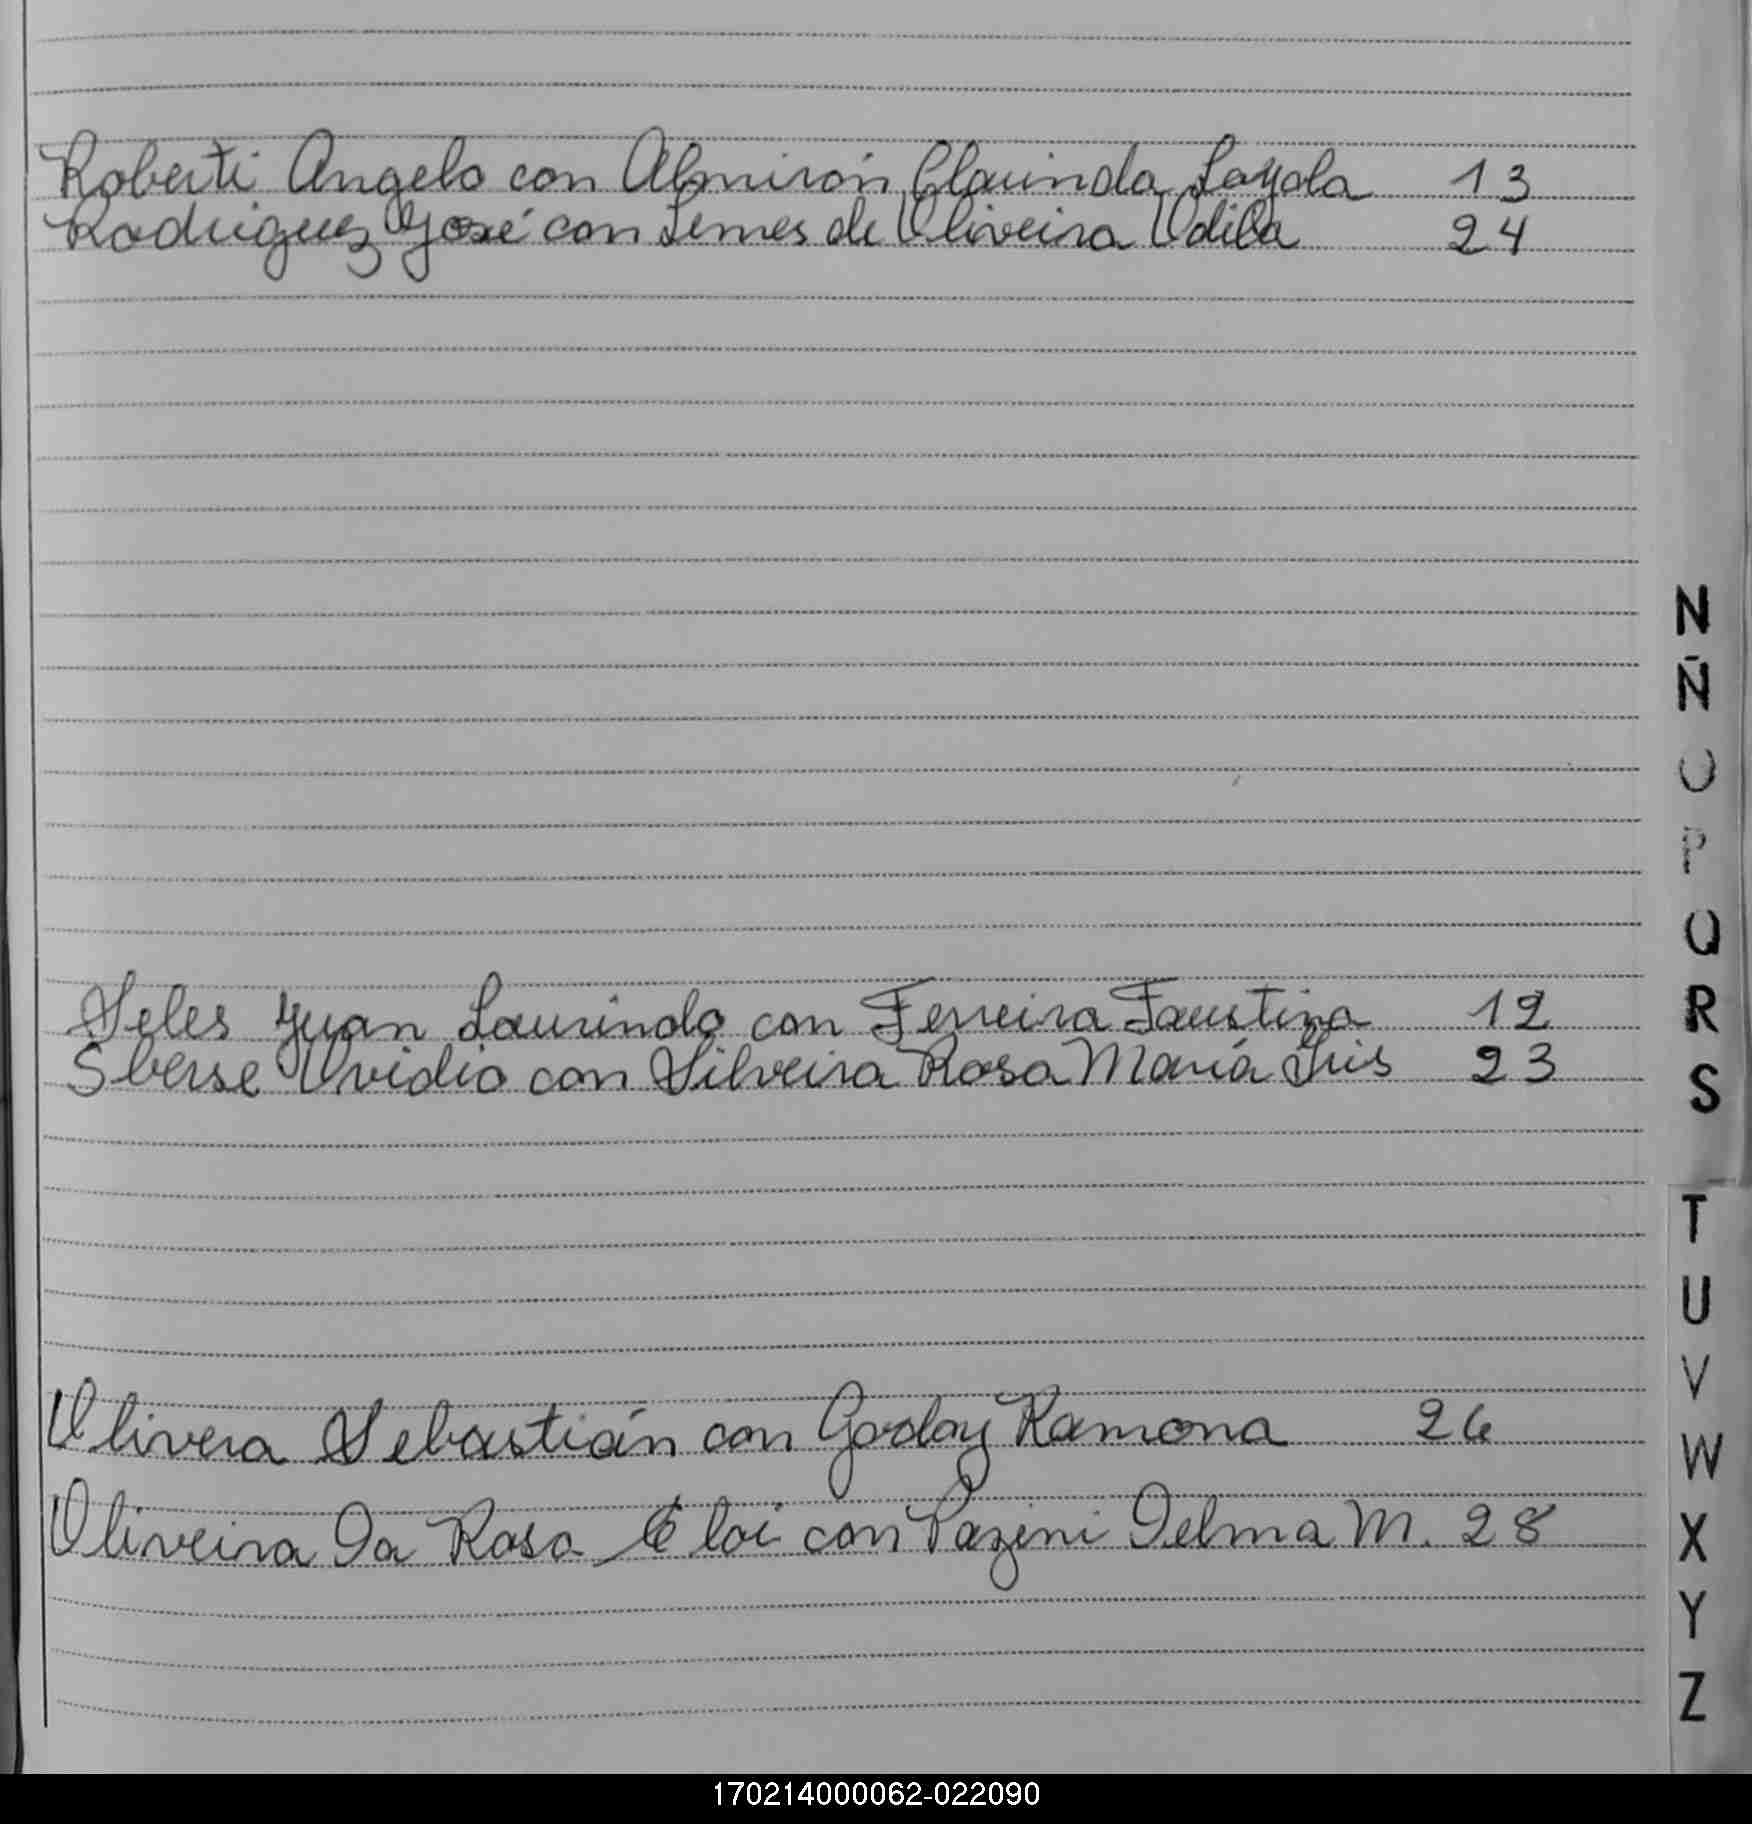 Roberti Angelo con Almirón Clarinda Loyola 13
Rodriguez José con Lemes de Oliveira Odila 24
Seles Juan Laurindo con Ferreira Faustina 12
Sberse Ovidio con Silveira Rosa María Iris 23
Olivera Sebastián con Godoy Ramona 26
Oliveira Da Rosa Eloi con Pazini Delma M. 28
N
Ñ
O
P
Q
R
S
T
U
V
W
X
Y
Z
170214000062-022090